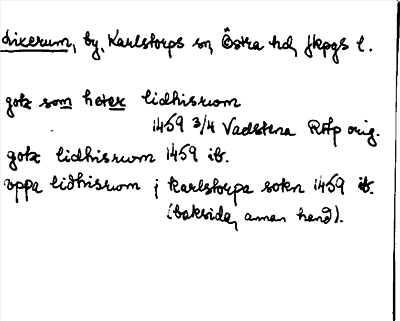 Lixerum, by, Karlstorps sn, Östra hd, Jkpgs l.
gotz som heter lidhisrwm
1459 3/4 Vadstena RAp orig.
gotz lidhisrwm 1459 ib.
vppa lidhisrwm j karlstorpa sokn 1459 ib.
(baksida, annan hand).